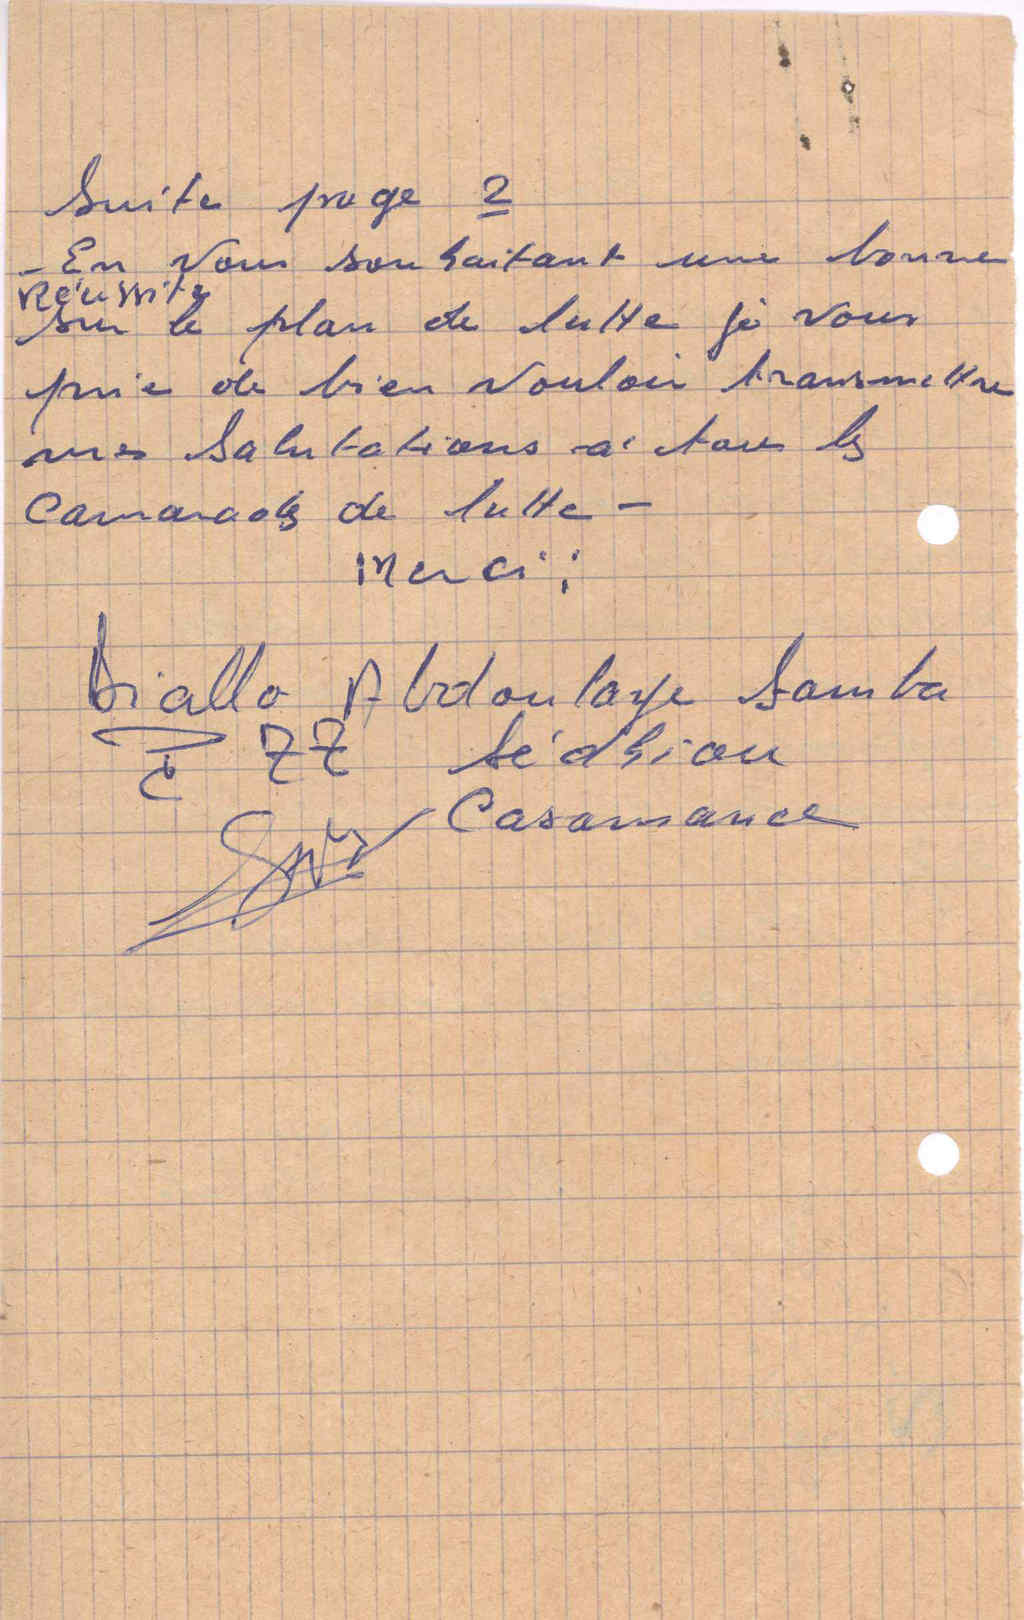 Suite page 2
- En vous souhaitant une bonne
Réussite
sur le plan de lutte je vous
prie de bien vouloir transmettre
mes Salutations à tous les
Camarades de lutte -
Merci;
Diallo Abdoulaye Samba
77 Sédhiou
Casamance